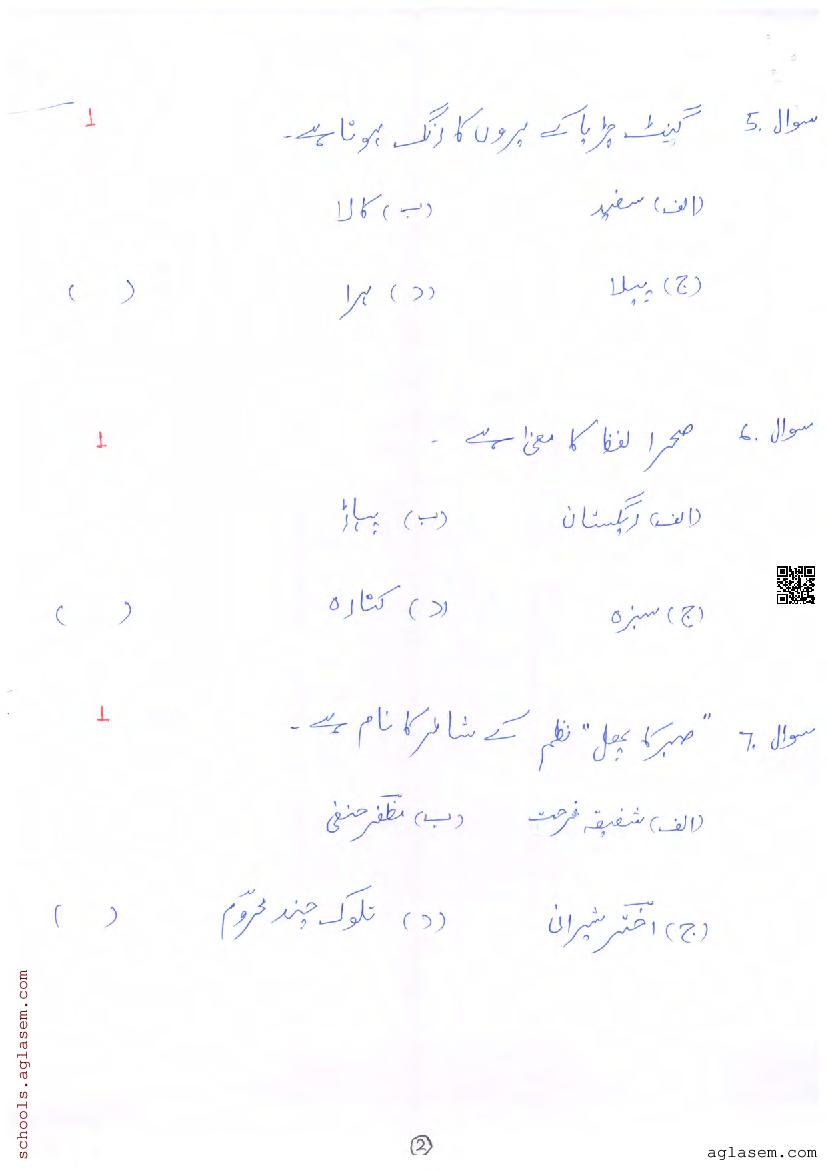 سوال .5 گینٹ چڑیا کے پروں کا رنگ ہوتا ہے ۔ 1
(الف) سفید (ب) کالا
(ج) پیلا (د) ہرا ( )
سوال .6 صحرا لفظ کا معنیٰ ہے ۔ 1
(الف) ریگستان (ب) پہاڑ
(ج) سبزہ (د) کنارہ ( )
سوال .7 "صبر کا پھل" نظم کے شاعر کا نام ہے ۔ 1
(الف) شفیقہ فرحت (ب) مظفر حنفی
(ج) اختر شیرانی (د) تلوک چند محروم ( )
schools.aglasem.com
2
aglasem.com